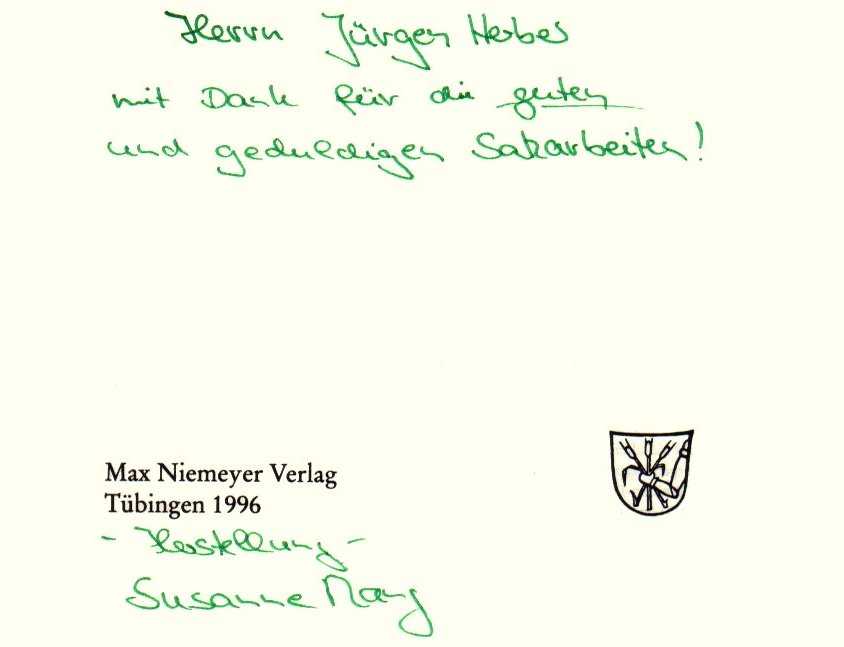 Herrn Jürgen Herbes
mit Dank für die guten
und geduldigen Satzarbeiten!
Max Niemeyer Verlag
Tübingen 1996
- Herstellung -
Susanne Mang